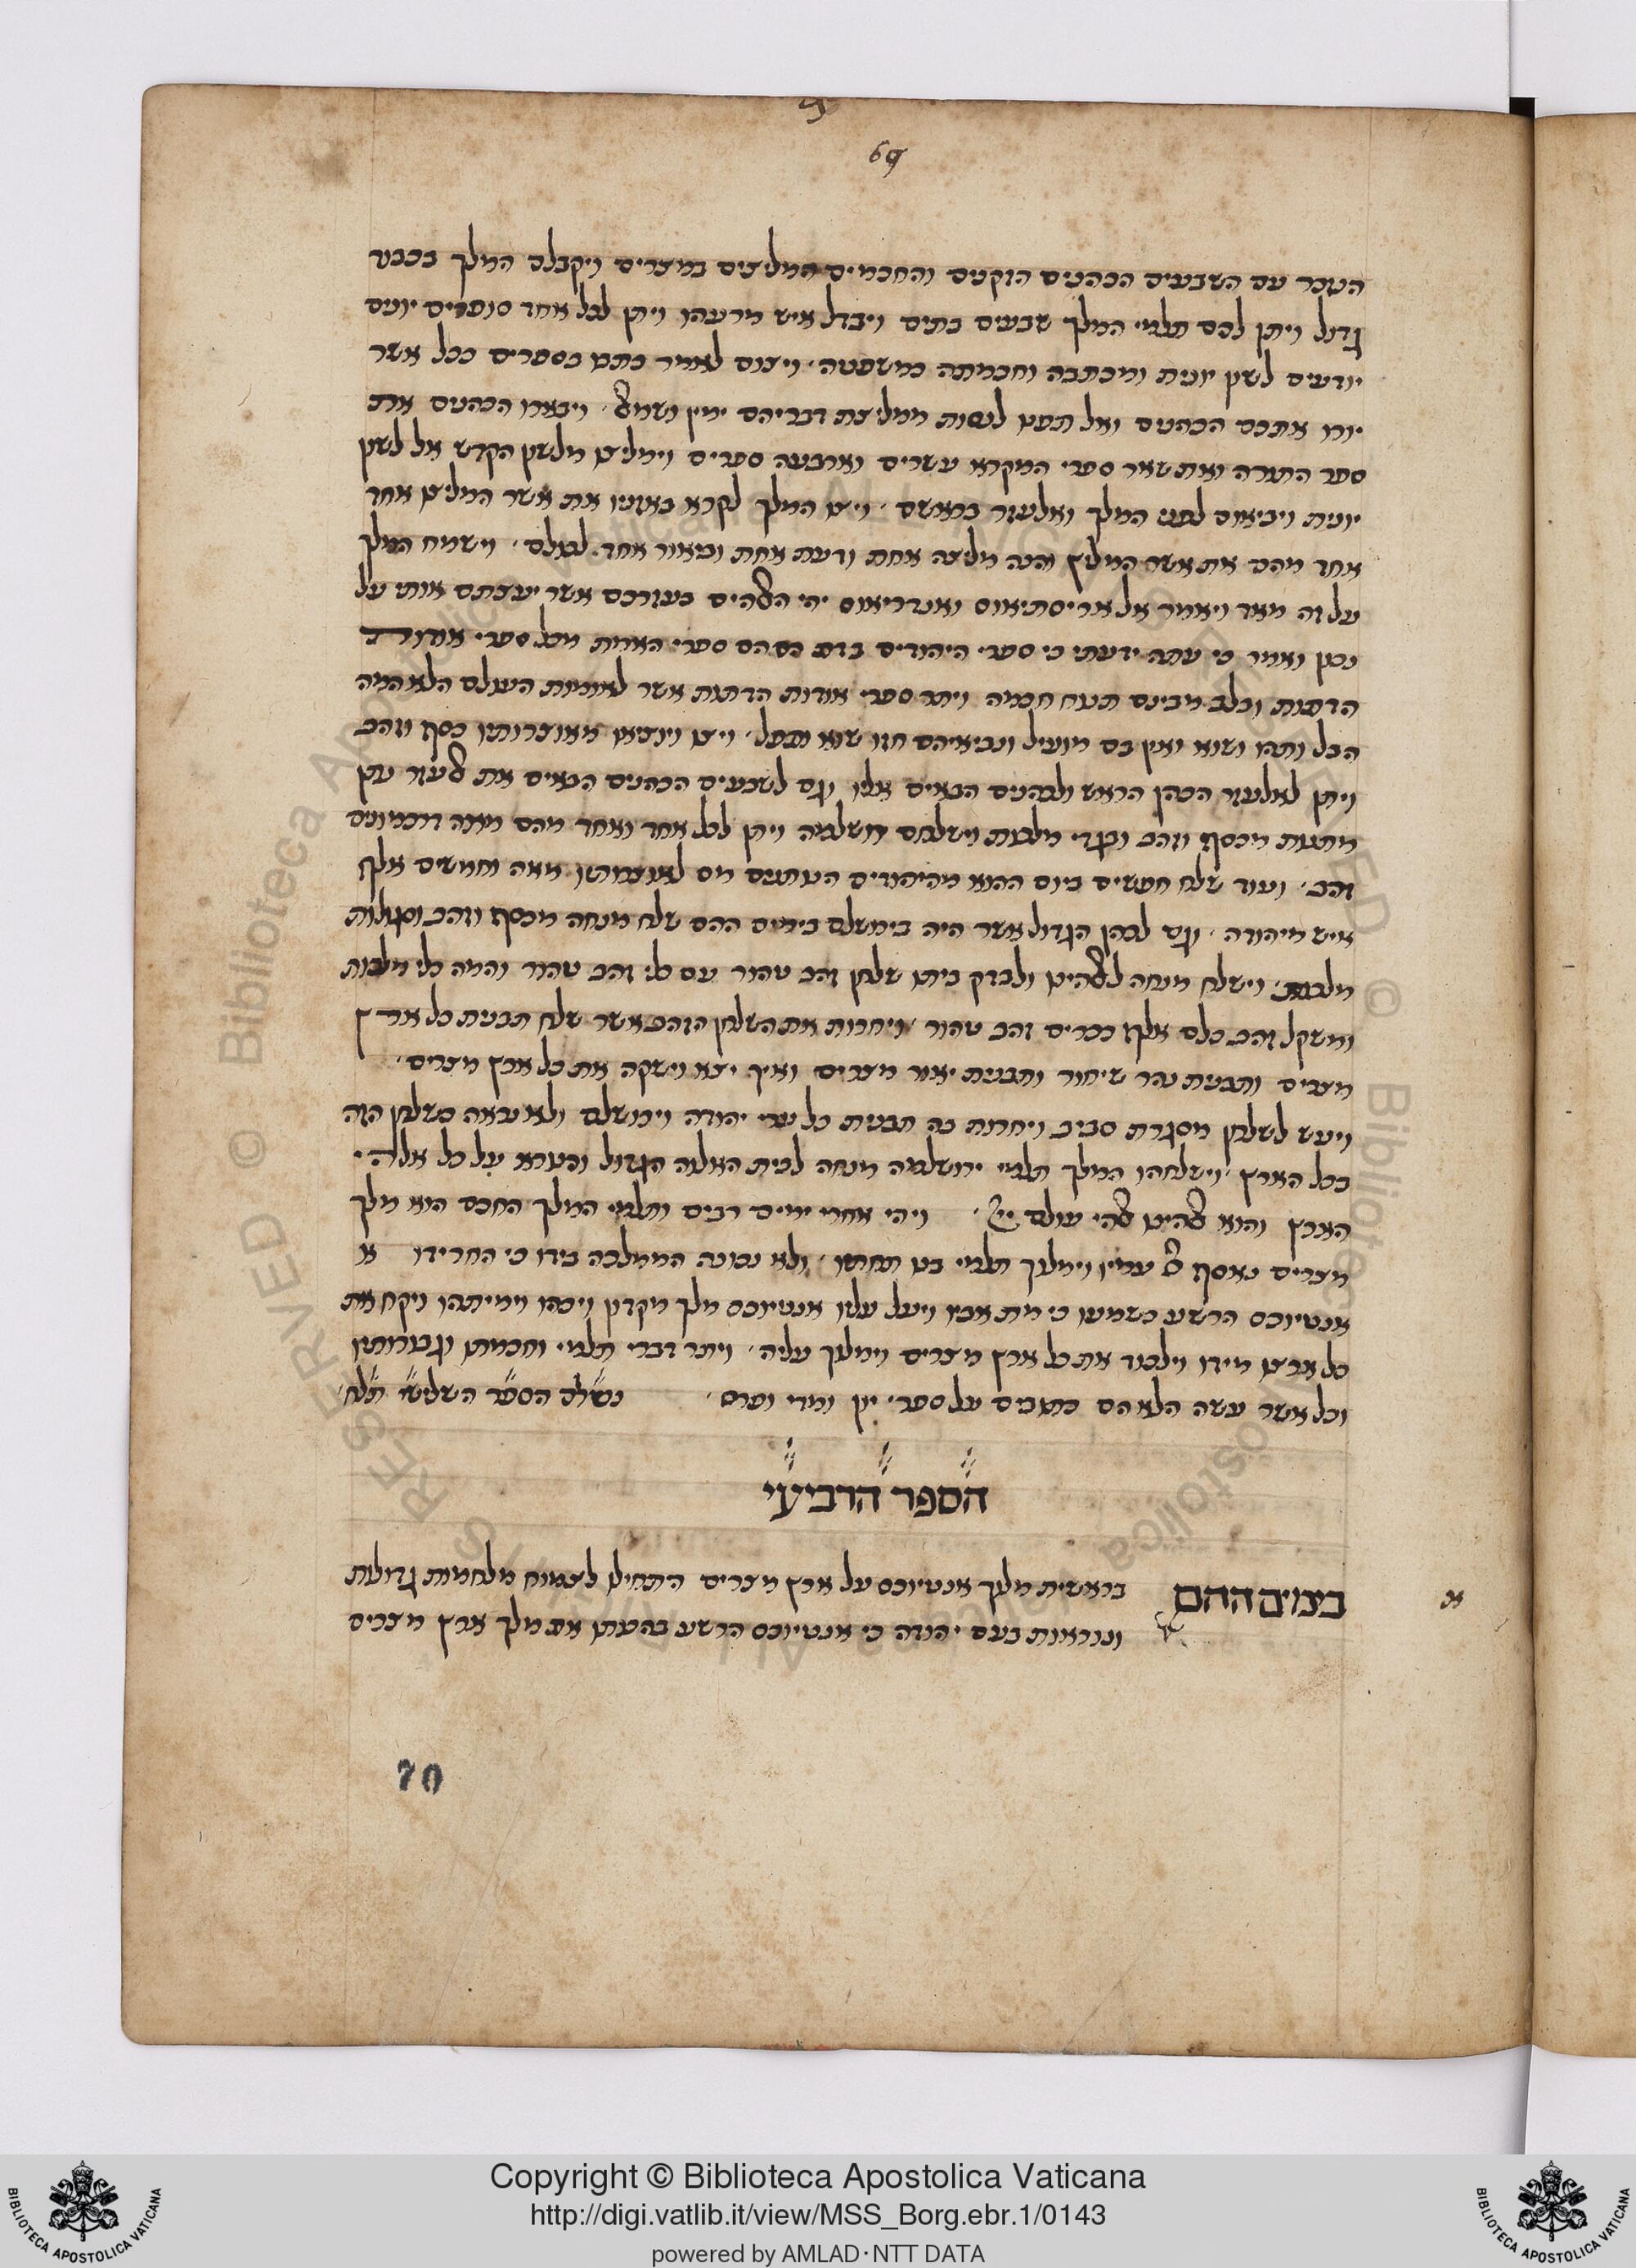 69
הנזכר עם השבעים הכהנים הזקנים והחכמים המליצים במצרים ויקבלם המלך בכבוד
גדול ויתן להם תלמי המלך שבעים בתים ויבדל איש מרעהו ויתן לכל אחד סופרים יונים
יודעים לשון יונית ומכתבה וחכמתה כמשפטה ויצום לאמר כתבו בספרים ככל אשר
יורו אתכם הכהנים ואל לנטות ממליצת דבריהם ימין ושמאל ויבארו הכהנים את
ספר התורה ואת שאר ספרי המקרא עשרים וארבעה ספרים וימליצו מלשון הקדש אל לשון
יונית ויביאום לפני המלך ואלעזר בראשם ויצו המלך לקרא באזניו את אשר המליצו אחד
אחד מהם את אשר המליץ והנה מליצה אחת ודעת אחת ובאור אחד לכולם וישמח המלך
על זה מאד ויאמר אל אריסתיאוס ואנדריאוס יהי האלהים בעזרכם אשר יעצתם אותי על
נכון ואמר כי עתה ידעתי כי ספרי היהודים הם ספרי האמת מכל ספרי אודות
הדתות ובלב מבינם תנוח חכמה ויתר ספרי אודות הדתות אשר לאומות העולם הלא המה
הבל ותהו ושוא ואין בם מועיל ונביאיהם חזו שוא ותפל ויצו ויוציאו מאוצרותיו כסף וזהב
ויתן לאלעזר הכהן הראש ולכהנים הבאים אליו וגם לשבעים הכהנים הבאים את אלעזר נתן
מתנות מכסף וזהב ובגדי מלכות וישלחם ירושלמה ויתן לכל אחד ואחד מהם מאה דרכמונים
זהב ועוד שלח חפשים ביום ההוא מהיהודים מאה וחמשים אלף
איש מיהודה וגם לכהן הגדול אשר היה בירושלם בימים ההם שלח מנחה מכסף וזהב וסגולות
מלכות וישלח מנחה לאלהים ולבדק ביתו שלחן זהב טהור עם כלי זהב טהור והמה כלי מלכות
ומשקל זהב כלם אלף ככרים זהב טהור ויחרות את השלחן הזהב אשר שלח תבנית כל ארץ
מצרים ותבנית נהר שיחור ותבנית יאור מצרים ואיך יצא וישקה את כל ארץ מצרים
ויעש לשלחן מסגרת סביב ויחרות בה תבנית כל ערי יהודה וירושלם ולא נראה כשלחן הזה
בכל הארץ וישלחהו המלך תלמי ירושלמה מנחה לבית האלוה הגדול והנורא על כל אלהי
הארץ והוא אלהים אלהי עולם ויהי אחרי ימים רבים ותלמי המלך החכם הוא מלך
מצרים נאסף אל עמיו וימלך תלמי בנו תחתיו ולא נכונה הממלכה בידו כי החרידו א
אנטיוכס הרשע כשמעו כי מת אביו ויעל עליו אנטיוכס מלך מקדון ויכהו וימיתהו ויקח את
כל ארצו מידו וילכוד את כל ארץ מצרים וימלך עליה ויתר דברי תלמי וחכמתו וגבורותיו
וכל אשר עשה הלא הם כתובים על ספרי יון ומדי ופרס נשלם הספר השלישי
הספר הרביעי
בימים ההם בראשית מלך אנטיוכס על ארץ מצרים התחילו לצמוח מלחמות גדולות
ונוראות בעם יהודה כי אנטיוכס הרשע בהמיתו את מלך ארץ מצרים
א
70
Copyright © Biblioteca Apostolica Vaticana
http://digi.vatlib.it/view/MSS_Borg.ebr.1/0143
powered by AMLAD·NTT DATA
BIBLIOTECA APOSTOLICA VATICANA
BIBLIOTECA APOSTOLICA VATICANA